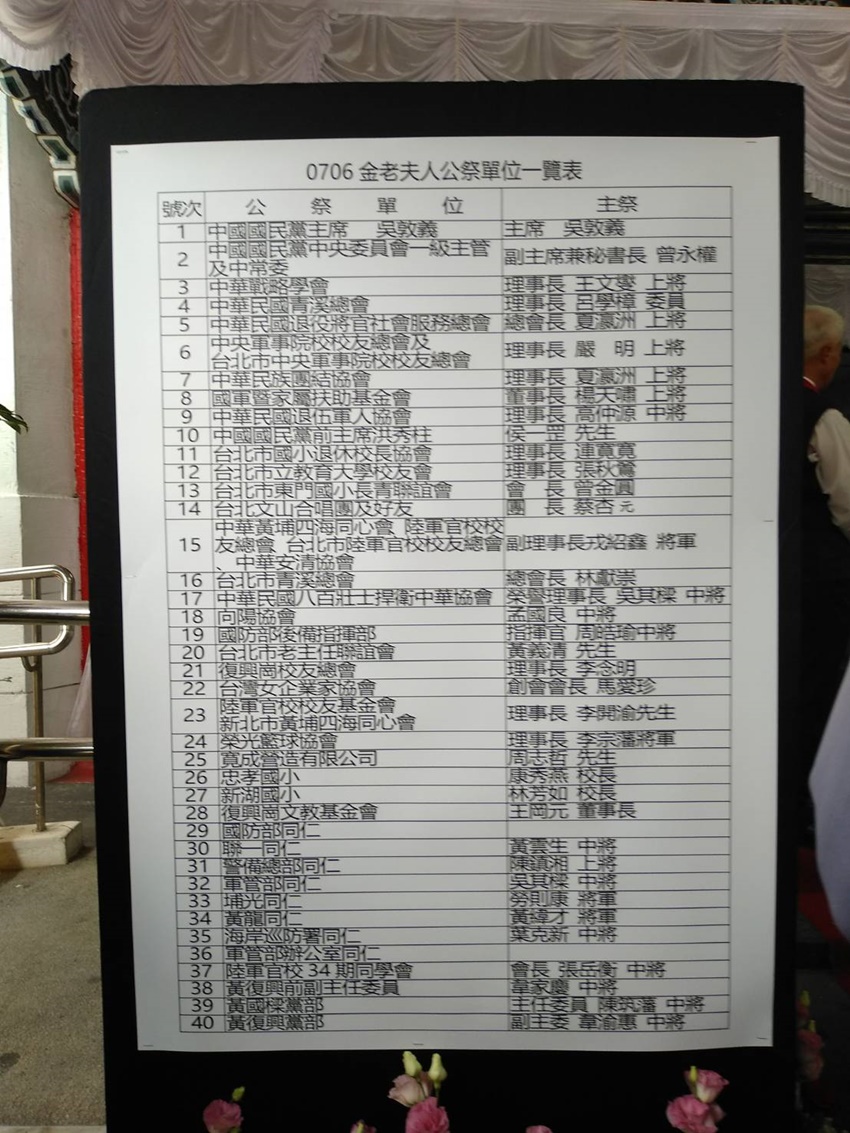 0706 金老夫人公祭單位一覽表
號次 公 祭 單 位 主祭
1 中國國民黨主席 吳敦義 主席 吳敦義
2 中國國民黨中央委員會一級主管 副主席兼秘書長 曾永權
及中常委
3 中華戰略學會 理事長 王文燮 上將
4 中華民國青溪總會 理事長 呂學樟 委員
5 中華民國退役將官社會服務總會 總會長 夏瀛洲 上將
6 中央軍事院校校友總會及 理事長 嚴 明 上將
台北市中央軍事院校校友總會
7 中華民族團結協會 理事長 夏瀛洲 上將
8 國軍暨家屬扶助基金會 董事長 楊天嘯 上將
9 中華民國退伍軍人協會 理事長 高仲源 中將
10 中國國民黨前主席洪秀柱 侯一罡 先生
11 台北市國小退休校長協會 理事長 連寬寬
12 台北市立教育大學校友會 理事長 張秋鶯
13 台北市東門國小長青聯誼會 會 長 曾金圓
14 台北文山合唱團及好友 團 長 蔡杏元
15 中華黃埔四海同心會、陸軍官校校 副理事長戎紹鑫 將軍
友總會、台北市陸軍官校校友總會
、中華安清協會
16 台北市青溪總會 總會長 林獻崇
17 中華民國八百壯士捍衛中華協會 榮譽理事長 吳其樑 中將
18 向陽協會 孟國良 中將
19 國防部後備指揮部 指揮官 周皓瑜中將
20 台北市老主任聯誼會 黃義清 先生
21 復興崗校友總會 理事長 李念明
22 台灣女企業家協會 創會會長 馬愛珍
23 陸軍官校校友基金會 理事長 李開渝先生
新北市黃埔四海同心會
24 榮光籃球協會 理事長 李宗藩將軍
25 寬成營造有限公司 周志哲 先生
26 忠孝國小 康秀燕 校長
27 新湖國小 林芳如 校長
28 復興崗文教基金會 王岡元 董事長
29 國防部同仁
30 聯一同仁 黃雲生 中將
31 警備總部同仁 陳鎮湘 上將
32 軍管部同仁 吳其樑 中將
33 埔光同仁 勞則康 將軍
34 黃龍同仁 黃緯才 將軍
35 海岸巡防署同仁 葉克新 中將
36 軍管部辦公室同仁
37 陸軍官校 34 期同學會 會長 張岳衡 中將
38 黃復興前副主任委員 韋家慶 中將
39 黃國樑黨部 主任委員 陳筑藩 中將
40 黃復興黨部 副主委 韋渝惠 中將